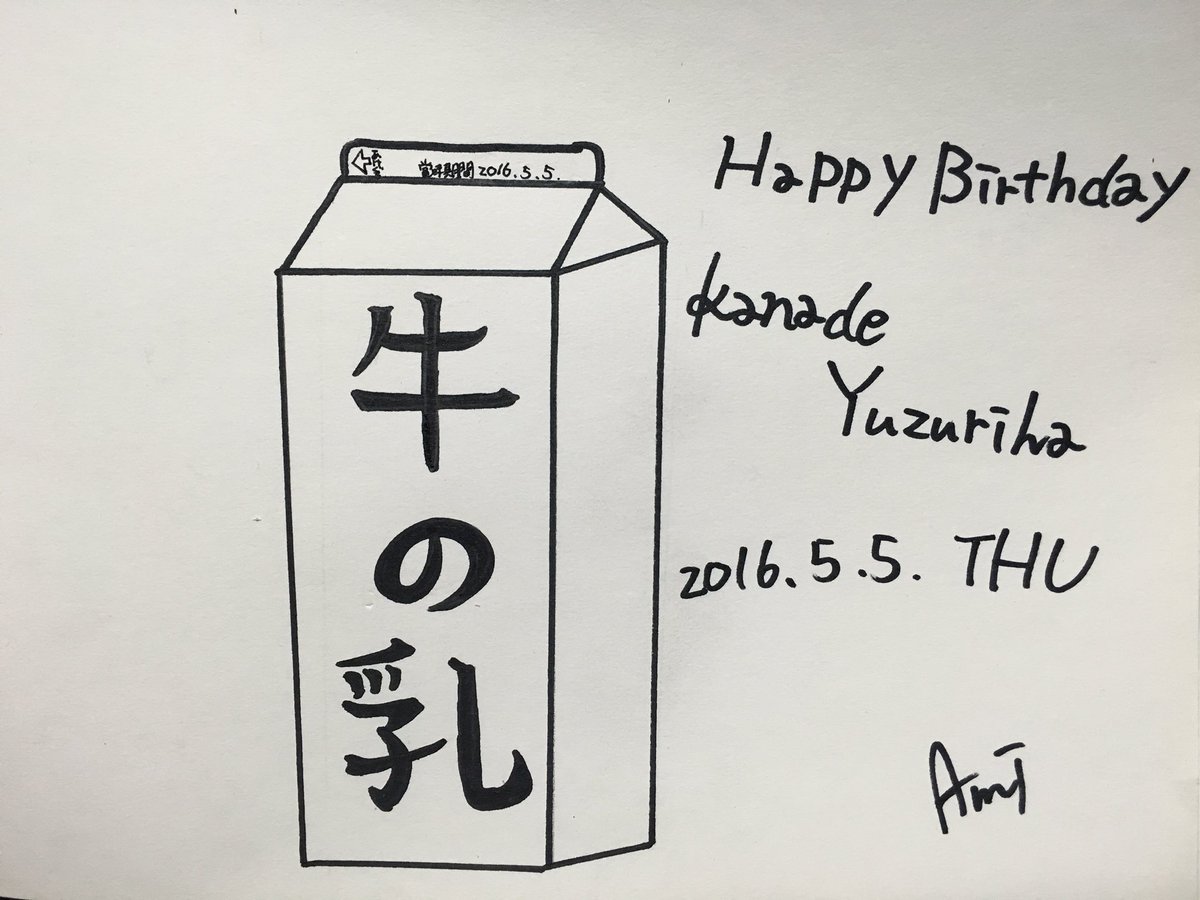 賞味期間 2016.5.5.
牛の乳
Happy Birthday
Kanade
Yuzuriha
2016.5.5. THU
Ami